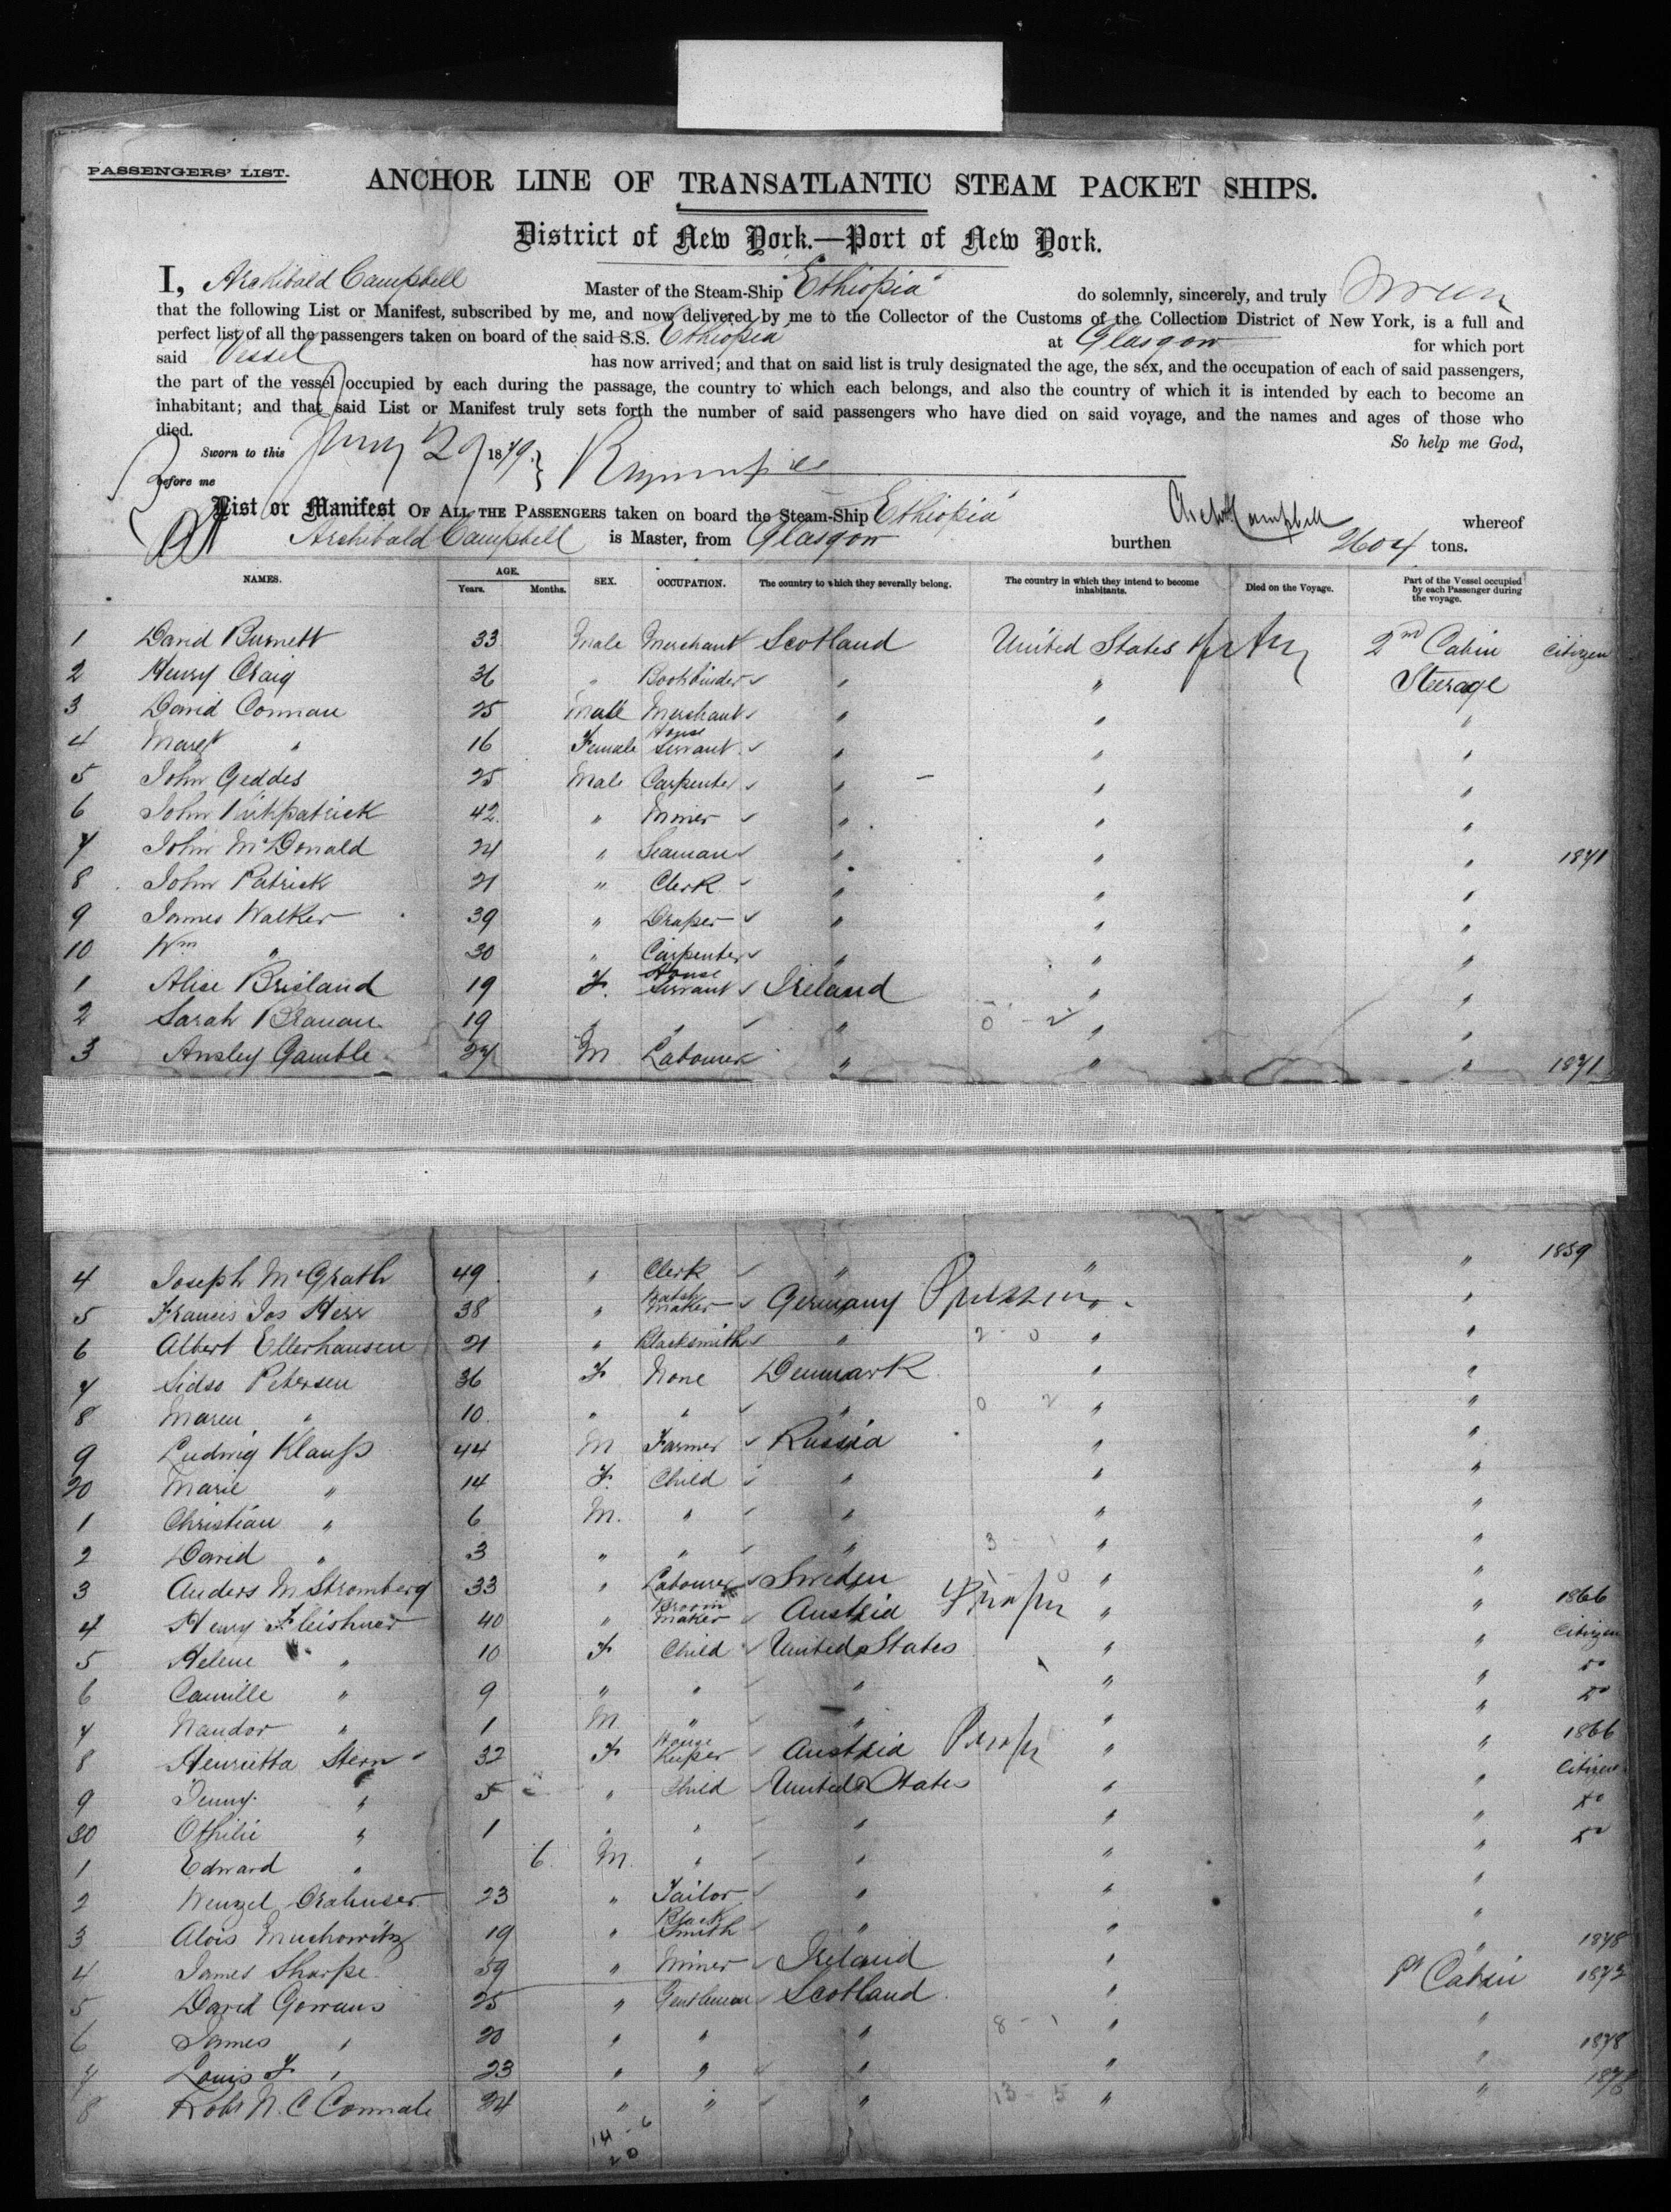 PASSENGERS' LIST.
ANCHOR LINE OF TRANSATLANTIC STEAM PACKET SHIPS.
District of New York.—Port of New York.
I, Archibald Campbell Master of the Steam-Ship "Ethiopia" do solemnly, sincerely, and truly
that the following List or Manifest, subscribed by me, and now delivered by me to the Collector of the Customs of the Collection District of New York, is a full and
perfect list of all the passengers taken on board of the said S.S. Ethiopia at Glasgow for which port
said Vessel has now arrived; and that on said list is truly designated the age, the sex, and the occupation of each of said passengers,
the part of the vessel occupied by each during the passage, the country to which each belongs, and also the country of which it is intended by each to become an
inhabitant; and that said List or Manifest truly sets forth the number of said passengers who have died on said voyage, and the names and ages of those who
died. So help me God,
Sworn to this 29 1879
before me
List or Manifest OF ALL THE PASSENGERS taken on board the Steam-Ship Ethiopia Arch Campbell whereof
Archibald Campbell is Master, from Glasgow burthen 2604 tons.
NAMES. AGE. Years. Months. SEX. OCCUPATION. The country to which they severally belong. The country in which they intend to become inhabitants. Died on the Voyage. Part of the Vessel occupied by each Passenger during the voyage.
1 David Burnett 33 Male Merchant Scotland United States 2nd Cabin Citizen
2 Henry Craig 36 " Bookbinder " " Steerage
3 David Connan 25 Male Merchant " " "
4 Margt " 16 Female House Servant " " "
5 John Geddes 25 Male Carpenter " " "
6 John Kirkpatrick 42 " Miner " " "
7 John McDonald 24 " Seaman " " " 1871
8 John Patrick 21 " Clerk " " "
9 James Walker 39 " Draper " " "
10 Wm " 30 " Carpenter " " "
1 Alice Brisland 19 F. House Servant Ireland " "
2 Sarah Branan 19 " " " 0 - 2 " "
3 Ansley Gamble 27 M Labourer " " " 1871
4 Joseph McGrath 49 " Clerk " " " 1859
5 Francis Jos Herr 38 " Maker Germany " "
6 Albert Ellerhausen 21 " Blacksmith " 2 - 0 " "
7 Sidso Petersen 36 F None Denmark " "
8 Maren " 10 " " " 0 2 " "
9 Ludwig Klauß 44 M Farmer Russia " "
20 Marie " 14 F. Child " " "
1 Christian " 6 M. " " " "
2 David " 3 " " " 3 - 1 " "
3 Anders M Stromberg 33 " Labourer Sweden " "
4 Henry Fleishner 40 " Broom Maker Austria " " 1866
5 Helene " 10 F Child United States " " Citizen
6 Camille " 9 " " " " " Do
7 Nandor " 1 M. " " " " Do
8 Henrietta Stern 32 F House Keeper Austria " " 1866
9 Jenny " 5 " Child United States " " Citizen
30 Othilie " 1 " " " " " Do
1 Edward " 6 M. " " " " Do
2 Wenzel 23 " Tailor " " "
3 Alois Muchowitz 19 " Black Smith " " "
4 James Sharpe 59 " Miner Ireland " " 1878
5 David Gowans 25 " Gentleman Scotland " 1st Cabin 1873
6 James " 20 " " " 8 - 1 " "
7 Louis F " 23 " " " " " 1878
8 Robt N. C Connale 24 " " " 13 - 5 " " 1878
14 - 6
20